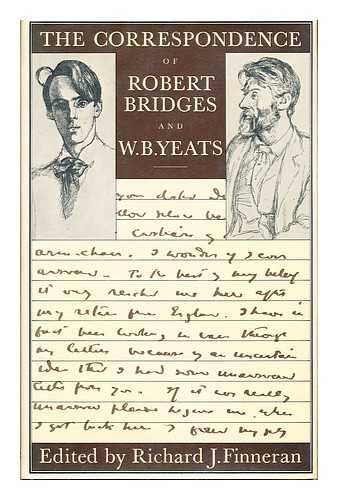 THE CORRESPONDENCE
OF
ROBERT
BRIDGES
AND
W.B.YEATS
you
cushions of
arm-chair. I wonder if I ever
answered. To the best of my belief
it only reached me here after
my return from England. I have in
fact been looking, in vain through
my letters because of an uncertain
idea that I had some unanswered
letter from you. If it was really
unanswered please forgive me. When
I got back here I found my
Edited by Richard J. Finneran